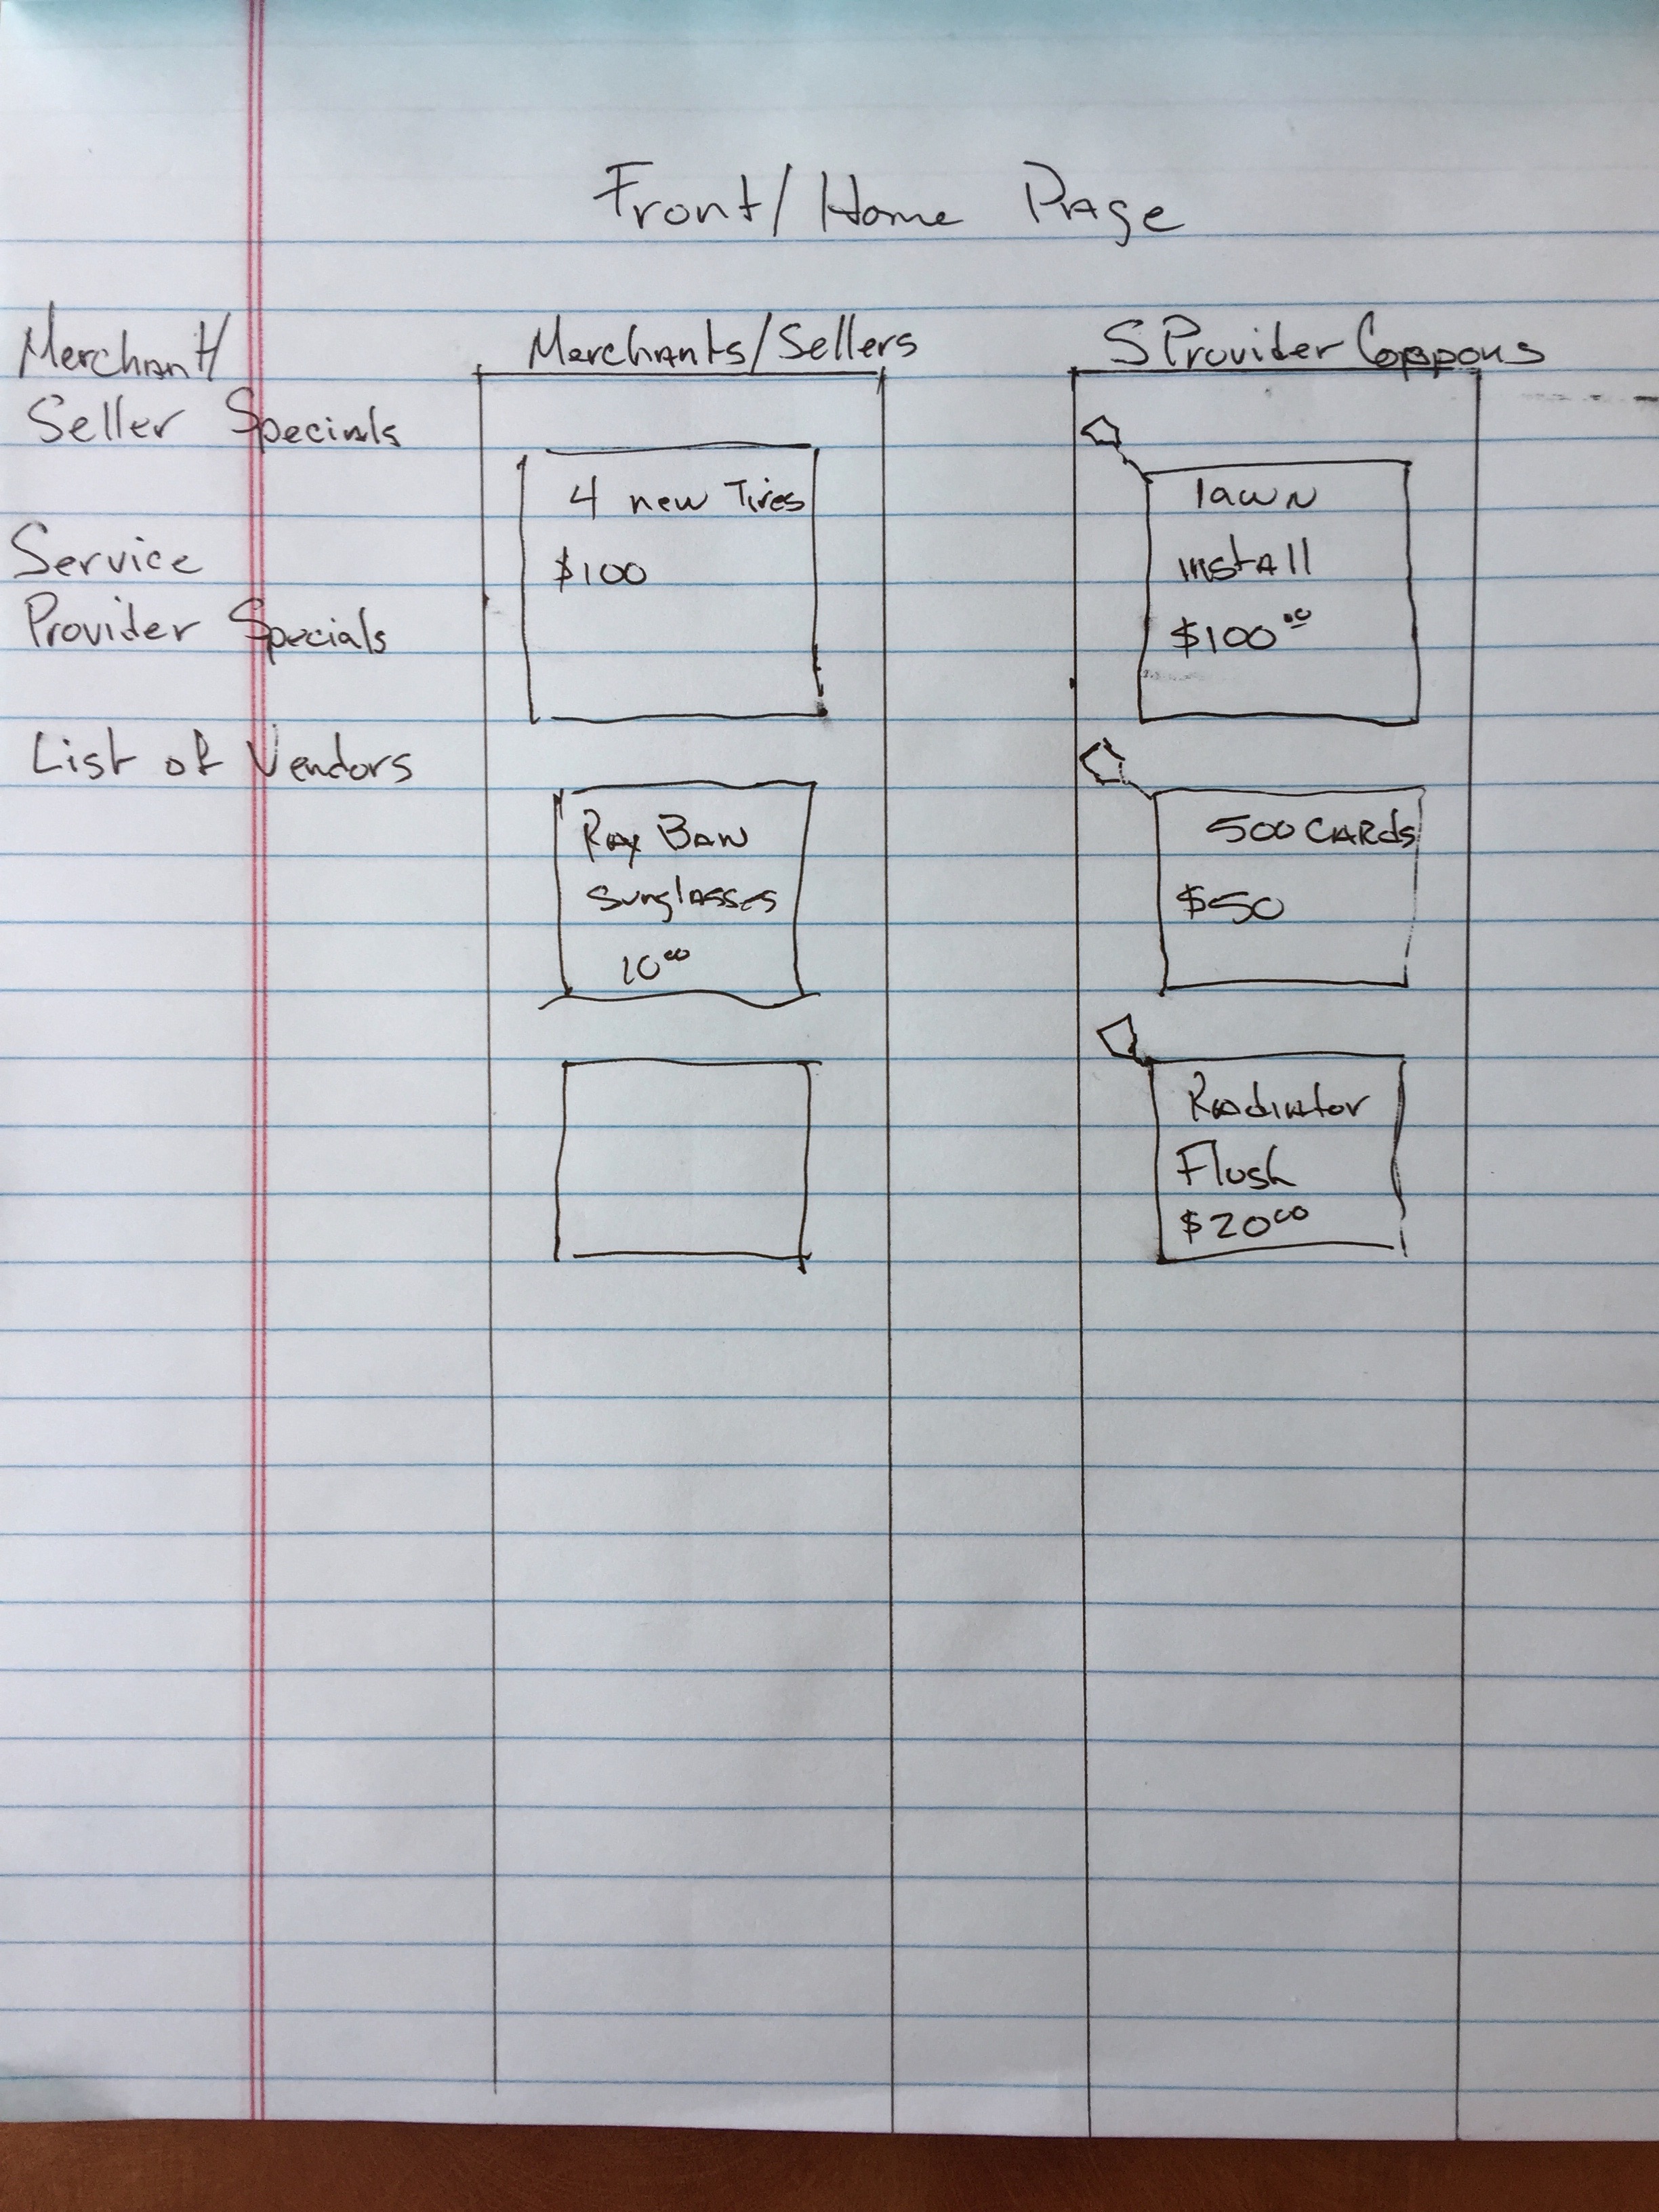 Front/Home Page
Merchant/
Seller Specials
Service
Provider Specials
List of Vendors
Merchants/Sellers
4 new Tires
$100
Ray Ban
Sunglasses
10.00
S Provider Coppons
lawn
install
$100.00
500 CARds
$50
Radiator
Flush
$20.00